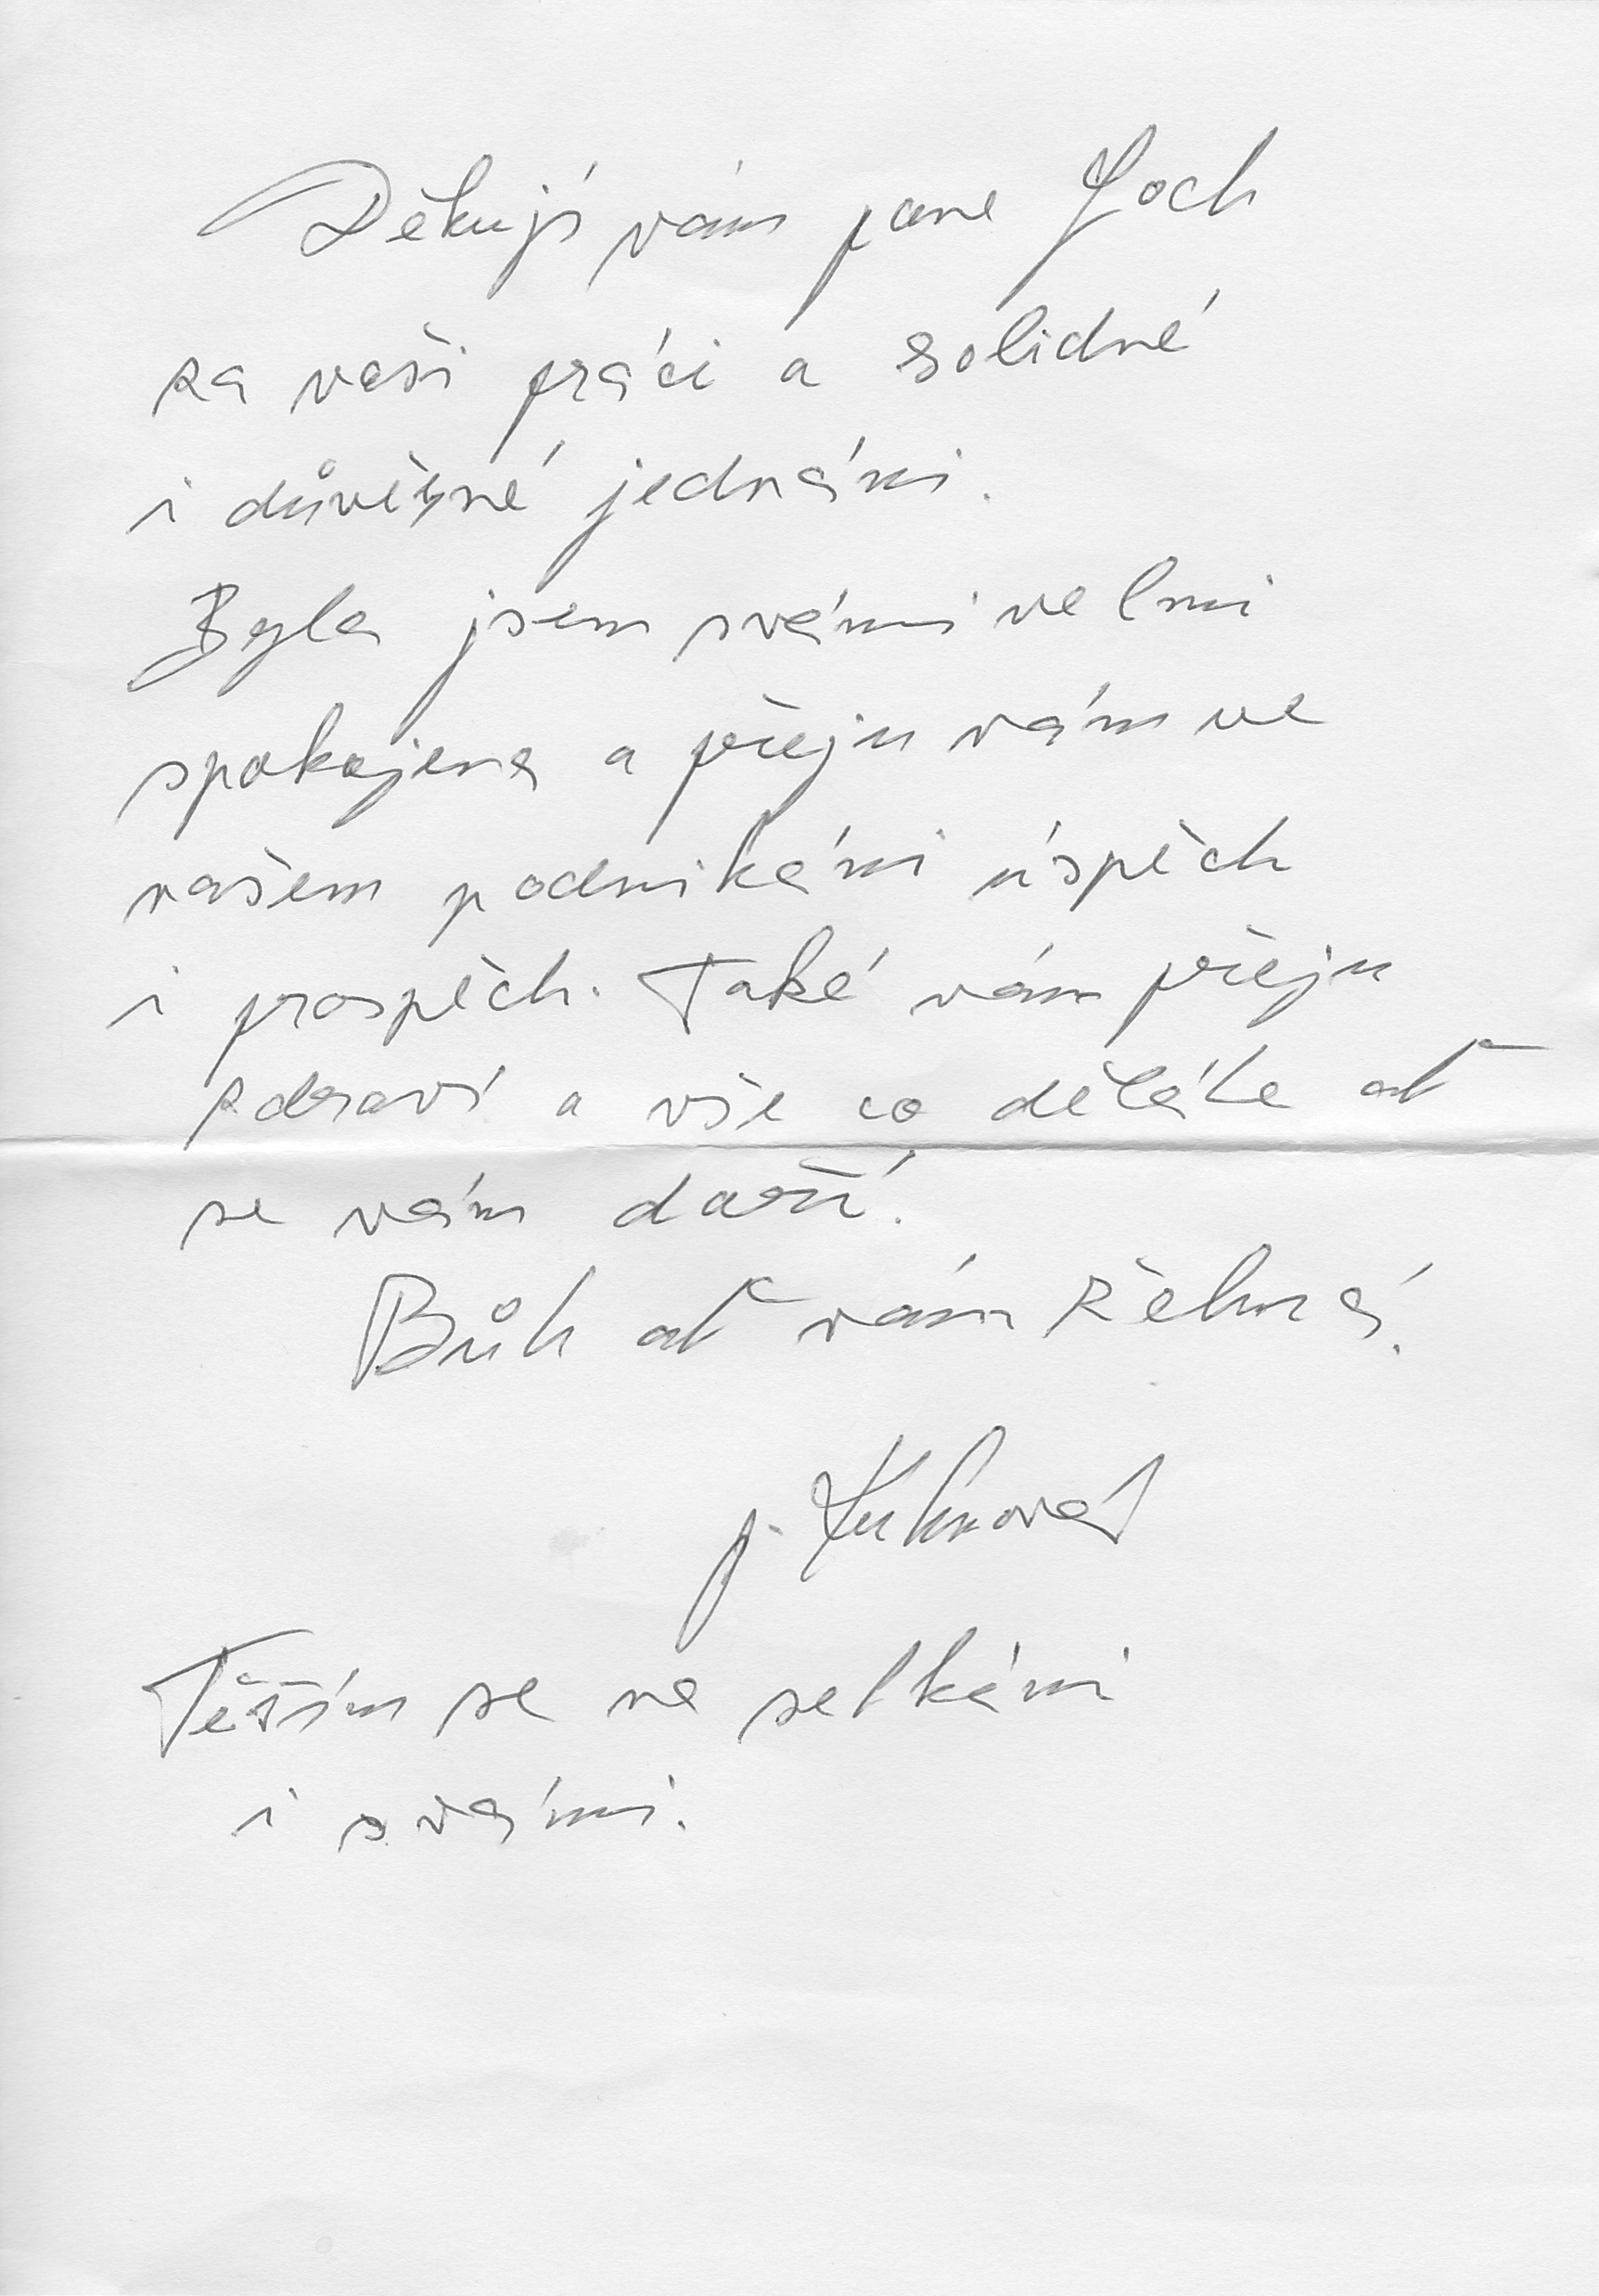 Děkuji vám pane Joch
za vaši práci a solidné
i důvěrné jednání.
Byla jsem svámi velmi
spokojena a přeju vám ve
vašem podnikání úspěch
i prospěch. Také vám přeju
zdraví a vše co děláte ať
se vám daří.
Bůh ať vám žehná.
p. Kuhnová
Těším se na setkání
i svámi.